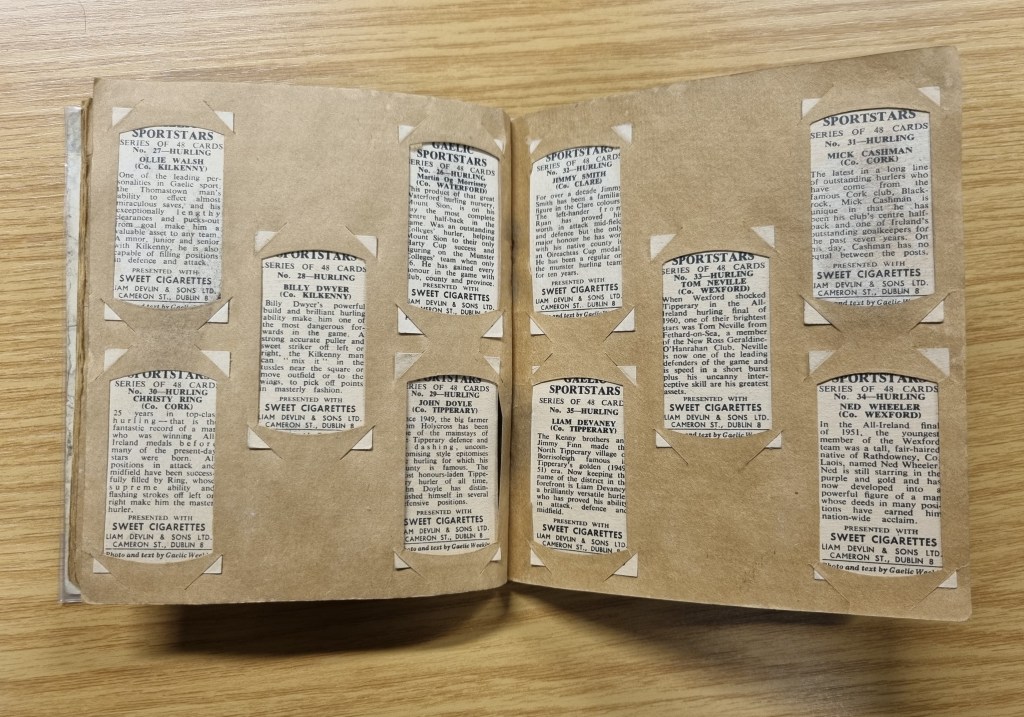 SPORTSTARS
SERIES OF 48 CARDS
No. 27—HURLING
OLLIE WALSH
(Co. KILKENNY)
One of the leading per-
sonalities in Gaelic sport,
the Thomastown man's
ability to effect almost
miraculous saves, and his
exceptionally lengthy
clearances and pucks-out
from goal make him a
valuable asset to any team.
A minor, junior and senior
with Kilkenny, he is also
capable of filling positions
in defence and attack.
PRESENTED WITH
SWEET CIGARETTES
LIAM DEVLIN & SONS LTD.
CAMERON ST., DUBLIN 8
SPORTSTARS
SERIES OF 48 CARDS
No. 28—HURLING
BILLY DWYER
(Co. KILKENNY)
Billy Dwyer's powerful
build and brilliant hurling
ability make him one of
the most dangerous for-
wards in the game. A
strong accurate puller and
sweet striker off left or
right, the Kilkenny man
can "mix it" in the
tussles near the square or
move outfield or to the
wings, to pick off points
in masterly fashion.
PRESENTED WITH
SWEET CIGARETTES
LIAM DEVLIN & SONS LTD.
CAMERON ST., DUBLIN 8
GAELIC
SPORTSTARS
SERIES OF 48 CARDS
No. 26—HURLING
Martin Og Morrissey
(Co. WATERFORD)
This product of that great
Waterford hurling nursery,
Mount Sion, is on his
day the most complete
centre half-back in the
game. Was an outstanding
Colleges' hurler, helping
Mount Sion to their only
Harty Cup success and
figuring on the Munster
Colleges' team when only
16. He has gained every
honour in the game with
club, county and province.
PRESENTED WITH
SWEET CIGARETTES
LIAM DEVLIN & SONS LTD.
CAMERON ST., DUBLIN 8
SPORTSTARS
SERIES OF 48 CARDS
No. 30—HURLING
CHRISTY RING
(Co. CORK)
25 years in top-class
hurling—that is the
fantastic record of a man
who was winning All-
Ireland medals before
many of the present-day
stars were born. All
positions in attack and
midfield have been success-
fully filled by Ring, whose
supreme ability and
flashing strokes off left or
right make him the master
hurler.
PRESENTED WITH
SWEET CIGARETTES
LIAM DEVLIN & SONS LTD.
CAMERON ST., DUBLIN 8
Photo and text by Gaelic Weekly
SPORTSTARS
SERIES OF 48 CARDS
No. 29—HURLING
JOHN DOYLE
(Co. TIPPERARY)
Since 1949, his the farmer
from Holycross has been
one of the mainstays of
the Tipperary defence and
dashing, uncom-
promising style epitomises
the hurling for which his
county is famous. The
most honours-laden Tippe-
rary hurler of all time,
John Doyle has distin-
guished himself in several
defensive positions.
PRESENTED WITH
SWEET CIGARETTES
LIAM DEVLIN & SONS LTD.
CAMERON ST., DUBLIN 8
Photo and text by Gaelic Weekly
SPORTSTARS
SERIES OF 48 CARDS
No. 32—HURLING
JIMMY SMITH
(Co. CLARE)
For over a decade Jimmy
Smith has been a familiar
figure in the Clare colours.
The left-hander from
Ruan has proved his
worth in attack mid-field
and defence but the only
major honour he has won
with his native county is
an Oireachtas Cup medal.
He has been a regular on
the munster hurling team
for ten years.
PRESENTED WITH
SWEET CIGARETTES
LIAM DEVLIN & SONS LTD.
CAMERON ST., DUBLIN 8
SPORTSTARS
SERIES OF 48 CARDS
No. 33—HURLING
TOM NEVILLE
(Co. WEXFORD)
When Wexford shocked
Tipperary in the All-
Ireland hurling final of
1960, one of their brightest
stars was Tom Neville from
Fethard-on-Sea, a member
of the New Ross Geraldine-
O'Hanrahan Club. Neville
is now one of the leading
defenders of the game and
his speed in a short burst
plus his uncanny inter-
ceptive skill are his greatest
assets.
PRESENTED WITH
SWEET CIGARETTES
LIAM DEVLIN & SONS LTD.
CAMERON ST., DUBLIN 8
SPORTSTARS
SERIES OF 48 CARDS
No. 31—HURLING
MICK CASHMAN
(Co. CORK)
The latest in a long line
of outstanding hurlers who
have come from the
famous Cork club, Black-
rock, Mick Cashman is
unique in that he has
been his club's centre half-
back and one of Ireland's
outstanding goalkeepers for
the past seven years. On
his day, Cashman has no
equal between the posts.
PRESENTED WITH
SWEET CIGARETTES
LIAM DEVLIN & SONS LTD.
CAMERON ST., DUBLIN 8
and text by Gaelic
GAELIC
SPORTSTARS
SERIES OF 48 CARDS
No. 35—HURLING
LIAM DEVANEY
(Co. TIPPERARY)
The Kenny brothers and
Jimmy Finn made the
North Tipperary village of
Borrisoleigh famous in
Tipperary's golden (1949-
51) era. Now keeping the
name of the district in the
forefront is Liam Devaney
a brilliantly versatile hurler
who has proved his ability
in attack, defence and
midfield.
PRESENTED WITH
SWEET CIGARETTES
LIAM DEVLIN & SONS LTD.
CAMERON ST., DUBLIN 8
SPORTSTARS
SERIES OF 48 CARDS
No. 34—HURLING
NED WHEELER
(Co. WEXFORD)
In the All-Ireland final
of 1951, the youngest
member of the Wexford
team was a tall, fair-haired
native of Rathdowney, Co.
Laois, named Ned Wheeler.
Ned is still starring in the
purple and gold and has
now developed into a
powerful figure of a man
whose deeds in many posi-
tions have earned him
nation-wide acclaim.
PRESENTED WITH
SWEET CIGARETTES
LIAM DEVLIN & SONS LTD.
CAMERON ST., DUBLIN 8
Photo and text by Gaelic Weekly